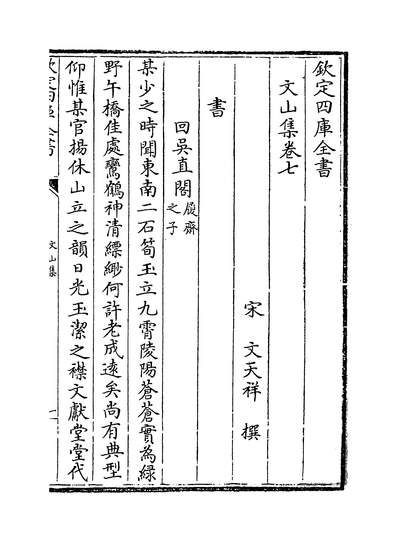 欽定四庫全書
文山集卷七
宋 文天祥 撰
書
回吳直閣履齋之子
某少之時聞東南二石筍玉立九霄陵陽蒼蒼實為緑
野午橋佳處鸞鶴神清縹緲何許老成遠矣尚有典型
仰惟某官揚休山立之韻日光玉潔之襟文獻堂堂代
欽定四庫全書
文山集
一